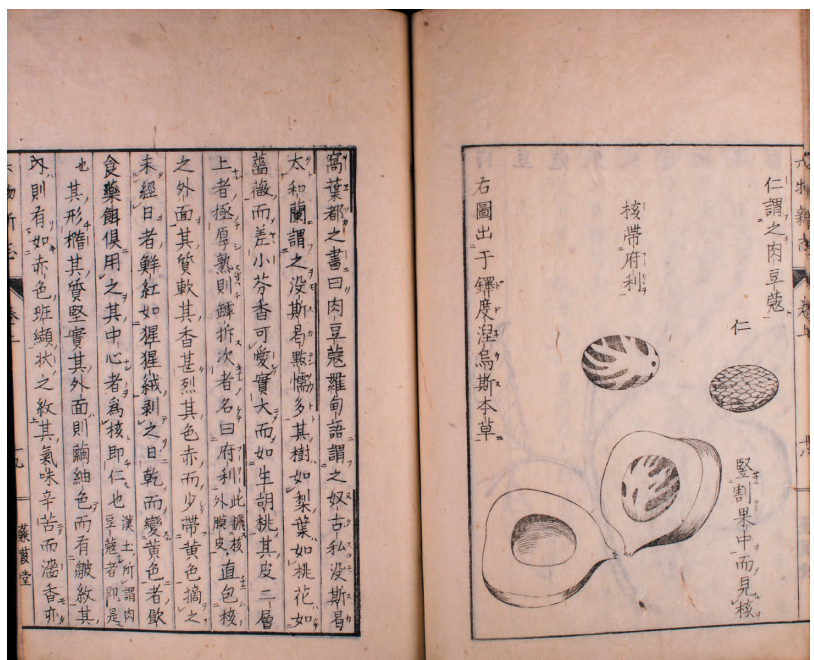 仁謂之肉豆蔻
仁
竪割果中而見核
核帶府利
右圖出于鐸度涅烏斯本草
窩葉都之書曰肉豆蔻羅甸語謂之奴古私沒斯曷
太和蘭謂之沒斯曷點懦多其樹如梨葉如桃花如
薔薇而差小芬香可愛實大而如生胡桃其皮二層
上者極厚熟則罅拆次者名曰府利此核外皮直包核
之外面其質軟其香甚烈其色赤而少帶黃色摘之
未經日者鮮紅如猩猩絨剥之日乾而變黃色者
食藥餌俱用之其中心者爲核即仁也漢土所謂肉豆蔻者即是
也其形楕其質堅實其外面則繭紬色而有皺紋其
內則有如赤色班纈狀之紋其氣味辛苦而濇香亦
蒹葭堂